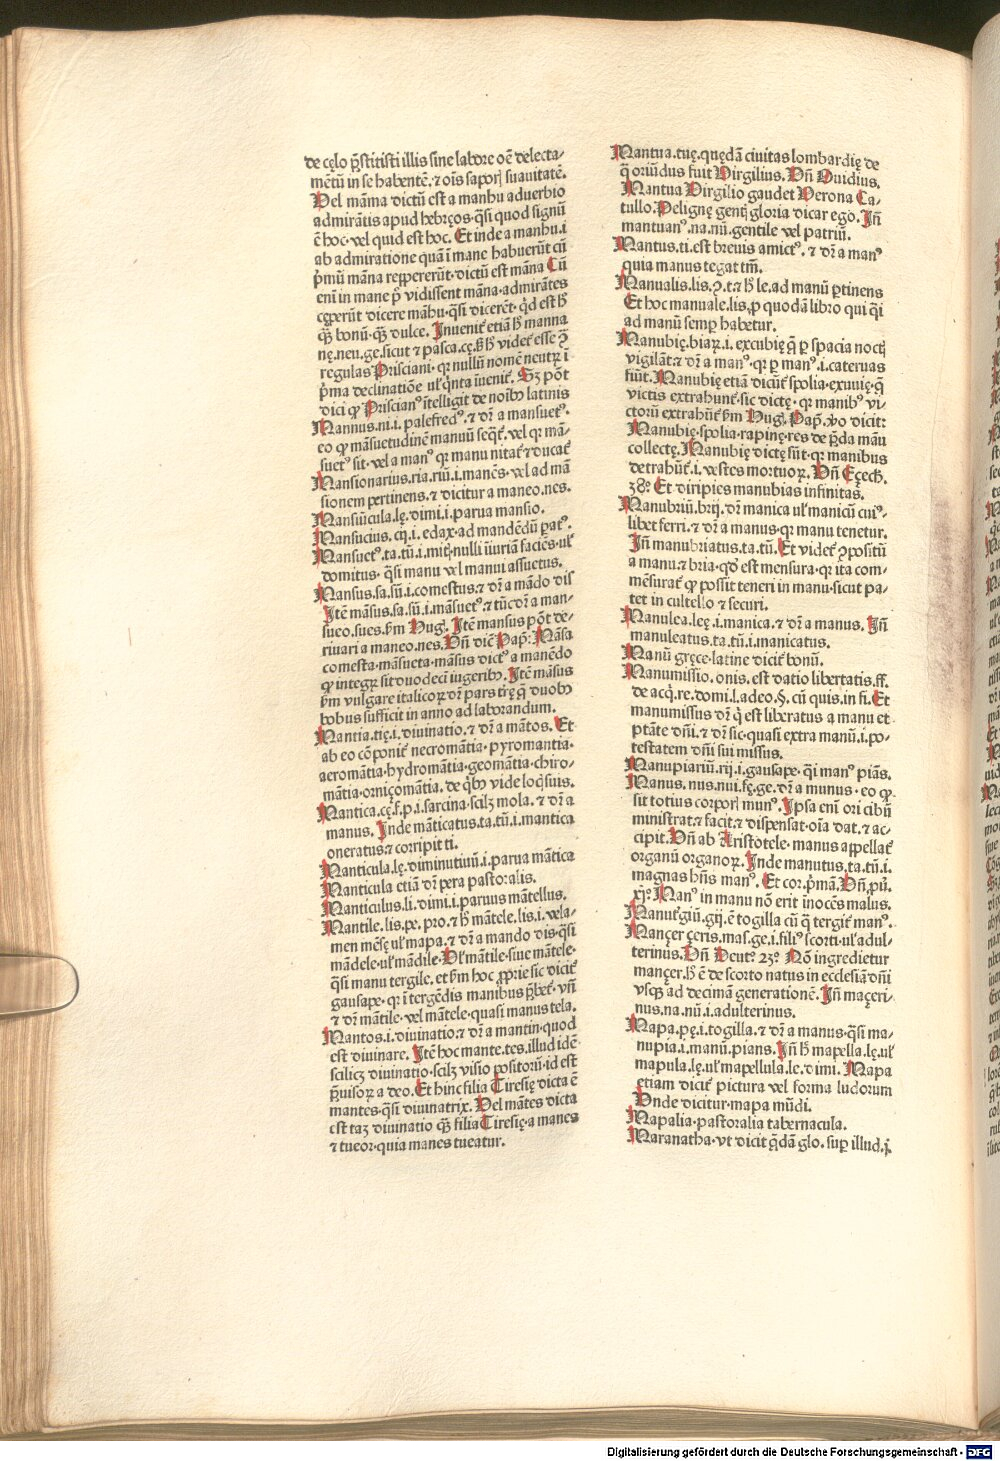 de cęlo p̄stitisti illis sine labore oē delecta-
mētū in se habentē. ⁊ oīs saporꝭ suauitatē.
Vel māma dictū est a manhu aduerbio
admirātis apud hebręos. q̄si quod signū
ē hoc. vel quid est hoc. Et inde a manhu. i
ab admiratione quā i mane habuerūt cū
pͥmū māna reppererūt. dictū est māna Cū
enī in mane pͥ vidissent māna. admirātes
cęperūt dicere māhu. q̄si dicerēt. qͥd est hͦ
qƷ̄ bonū. qƷ̄ dulce. Inuenit᷑ etiā hͦ manna
nę. neu. ge. sicut ⁊ pasca. cę. sꝫ hͦ videt᷑ esse ꝯͣ
regulas Prisciani. qꝛ nullū nomē neutꝝ i
pͥma declinatiōe ul̓ qͥnta īuenit᷑. Sꝫ pōt
dici ꝙ Priscian⁹ ītelligit de noībꝫ latinis
Mannus. ni. i. palefred⁹. ⁊ dr̄ a mansuet⁹.
eo ꝙ māsuetudinē manuū seqͣt᷑. vel qꝛ mā-
suet⁹ sit. vel a man⁹ qꝛ manu nitat᷑ ⁊ ducat᷑
Mansionarius. ria. riū. i. manēs. vel ad mā
sionem pertinens. ⁊ dicitur a maneo. nes.
Mansiūcula. lę. dimi. i. parua mansio.
Mansucius. cij. i. edax. ad mandēdū pͣat⁹.
Mansuet⁹. ta. tū. i. mitꝭ. nulli īiuriā faciēs. ul̓
domitus. q̄si manu vel manui assuetus.
Mansus. sa. sū. i. comestus. ⁊ dr̄ a mādo dis
Itē māsus. sa. sū. i. māsuet⁹. ⁊ tūc dr̄ a man-
sueo. sues. ẜm Hug̓. Itē mansus pōt de-
riuari a maneo. nes. Vn̄ dic̄ Pap̄. Māsa
comesta. māsueta. māsus dict⁹ a manēdo
ꝙ integꝝ sit duodeci iugeribꝫ. Itē māsus
ẜm vulgare italicoꝝ dr̄ pars trę q̄ duobꝫ
bobus sufficit in anno ad laborandum.
Mantia. tię. i. diuinatio. ⁊ dr̄ a mātos. Et
ab eo cōponit᷑ necromātia. pyromantia.
aeromātia. hydromātia. geomātia. chiro-
mātia. orniçomātia. de qͥbꝫ vide loq̄ suis.
Mantica. cę. f. p. i. sarcina. scilꝫ mola. ⁊ dr̄ a
manus. Inde māticatus. ta. tū. i. mantica
oneratus. ⁊ corripit ti.
Manticula. lę. diminutiuū. i. parua mātica
Manticula etiā dr̄ pera pastoralis.
Manticulus. li. dimi. i. paruus mātellus.
Mantile. lis. pe. pro. ⁊ hͦ mātele. lis. i. vela-
men mēsę ul̓ mapa. ⁊ dr̄ a mando dis. q̄si
mādele. ul̓ mādile. Vl̓ mātile. siue mātele.
q̄si manu tergile. et ẜm hoc ꝓprie sic dicit᷑
gausape. qꝛ ī tergēdis manibus p̄bet᷑. vn̄
⁊ dr̄ mātile. vel mātele. quasi manus tela.
Mantos. i. diuinatio. ⁊ dr̄ a mantin. quod
est diuinare. Itē hoc mante. tes. illud idē
scilicꝫ diuinatio. scilꝫ visio positorū. id est
p̄uisorꝝ a deo. Et hinc filia Tiresię dicta ē
mantes. q̄si diuinatrix. Vel mātes dicta
est taꝫ diuinatio qƷ̄ filia Tiresię. a manes
⁊ tueor. quia manes tueatur.
Mantua. tuę. quędā ciuitas lombardię de
q̄ oriūdus fuit Virgilius. Vn̄ Ouidius.
Mantua Virgilio gaudet Verona Ca-
tullo. Pelignę gentꝭ gloria dicar ego. In̄
mantuan⁹. na. nū. gentile vel patriū.
Mantus. ti. est breuis amict⁹. ⁊ dr̄ a man⁹
quia manus tegat tm̄.
Manualis. lis. ꝯ. t. ⁊ hͦ le. ad manū ꝑtinens
Et hoc manuale. lis. ꝓ quodā libro qui qͥi
ad manū semꝑ habetur.
Manubię. biaꝝ. i. excubię q̄ ꝑ spacia noctꝭ
vigilāt. ⁊ dr̄ a man⁹. qꝛ ꝑ man⁹. i. cateruas
fiūt. Manubię etiā dicūt᷑ spolia. exuuię. q̄
victis extrahunt᷑. sic dictę. qꝛ manibꝫ vi-
ctorū extrahūt᷑ ẜm Hug̓. Pap̄. v̊o dicit:
Manubię. spolia. rapinę. res de p̄da māu
collectę. Manubię dictę sūt. qꝛ manibus
detrahūt᷑. i. vestes mortuoꝝ. Vn̄ Eçech̓.
38⁰. Et diripies manubias infinitas.
Manubriū. brij. dr̄ manica ul̓ manicū cui⁹-
libet ferri. ⁊ dr̄ a manus. qꝛ manu tenetur.
In̄ manubriatus. ta. tū. Et videt᷑ ꝯpositū
a manu. ⁊ bria. qd̓ est mensura. qꝛ ita com-
mēsurat᷑ ꝙ possit teneri in manu. sicut pa-
tet in cultello ⁊ securi.
Manulea. leę. i. manica. ⁊ dr̄ a manus. In̄
manuleatus. ta. tū. i. manicatus.
Manū gręce. latine dicit᷑ bonū.
Manumissio. onis. est datio libertatis. ff.
de acq̄. re. domi. l. adeo. §. cū quis. in fi. Et
manumissus dr̄ qͥ est liberatus a manu et
ptāte dn̄i. ⁊ dr̄ sic. quasi extra manū. i. po-
testatem dn̄i sui missus.
Manupiariū. rij. i. gausape. qͥi man⁹ piās.
Manus. nus. nui. fę. ge. dr̄ a munus. eo ꝙ
sit totius corporꝭ mun⁹. Ipsa enī ori cibū
ministrat. ⁊ facit. ⁊ dispensat. oīa dat. ⁊ ac-
cipit. Vn̄ ab Aristotele. manus appellat᷑
organū organoꝝ. Inde manutus. ta. tū. i.
magnas hn̄s man⁹. Et cor. pͥmā. Vn̄. pu̇.
xj⁰. Man⁹ in manu nō erit inocēs malus.
Manut᷑giū. gij. ē togilla cū q̄ tergit᷑ man⁹.
Mançer çeris. mas. ge. i. fili⁹ scorti. ul̓ adul-
terinus. Vn̄ Deut⁰. 23⁰. Nō ingredietur
mançer. hͦ ē de scorto natus in ecclesiā dn̄i
vsqꝫ ad decimā generationē. In̄ maçeri-
nus. na. nū. i. adulterinus.
Mapa. pę. i. togilla. ⁊ dr̄ a manus. q̄si ma-
nupia. i. manū. pians. In̄ hͦ mapella. lę. ul̓
mapula. lę. ul̓ mapellula. le. dimi. Mapa
etiam dicit᷑ pictura vel forma ludorum
Vnde dicitur. mapa mūdi.
Mapalia. pastoralia tabernacula.
Maranatha. vt dicit q̄dā glo. suꝑ illud. j.
Digitalisierung gefördert durch die Deutsche Forschungsgemeinschaft - DFG